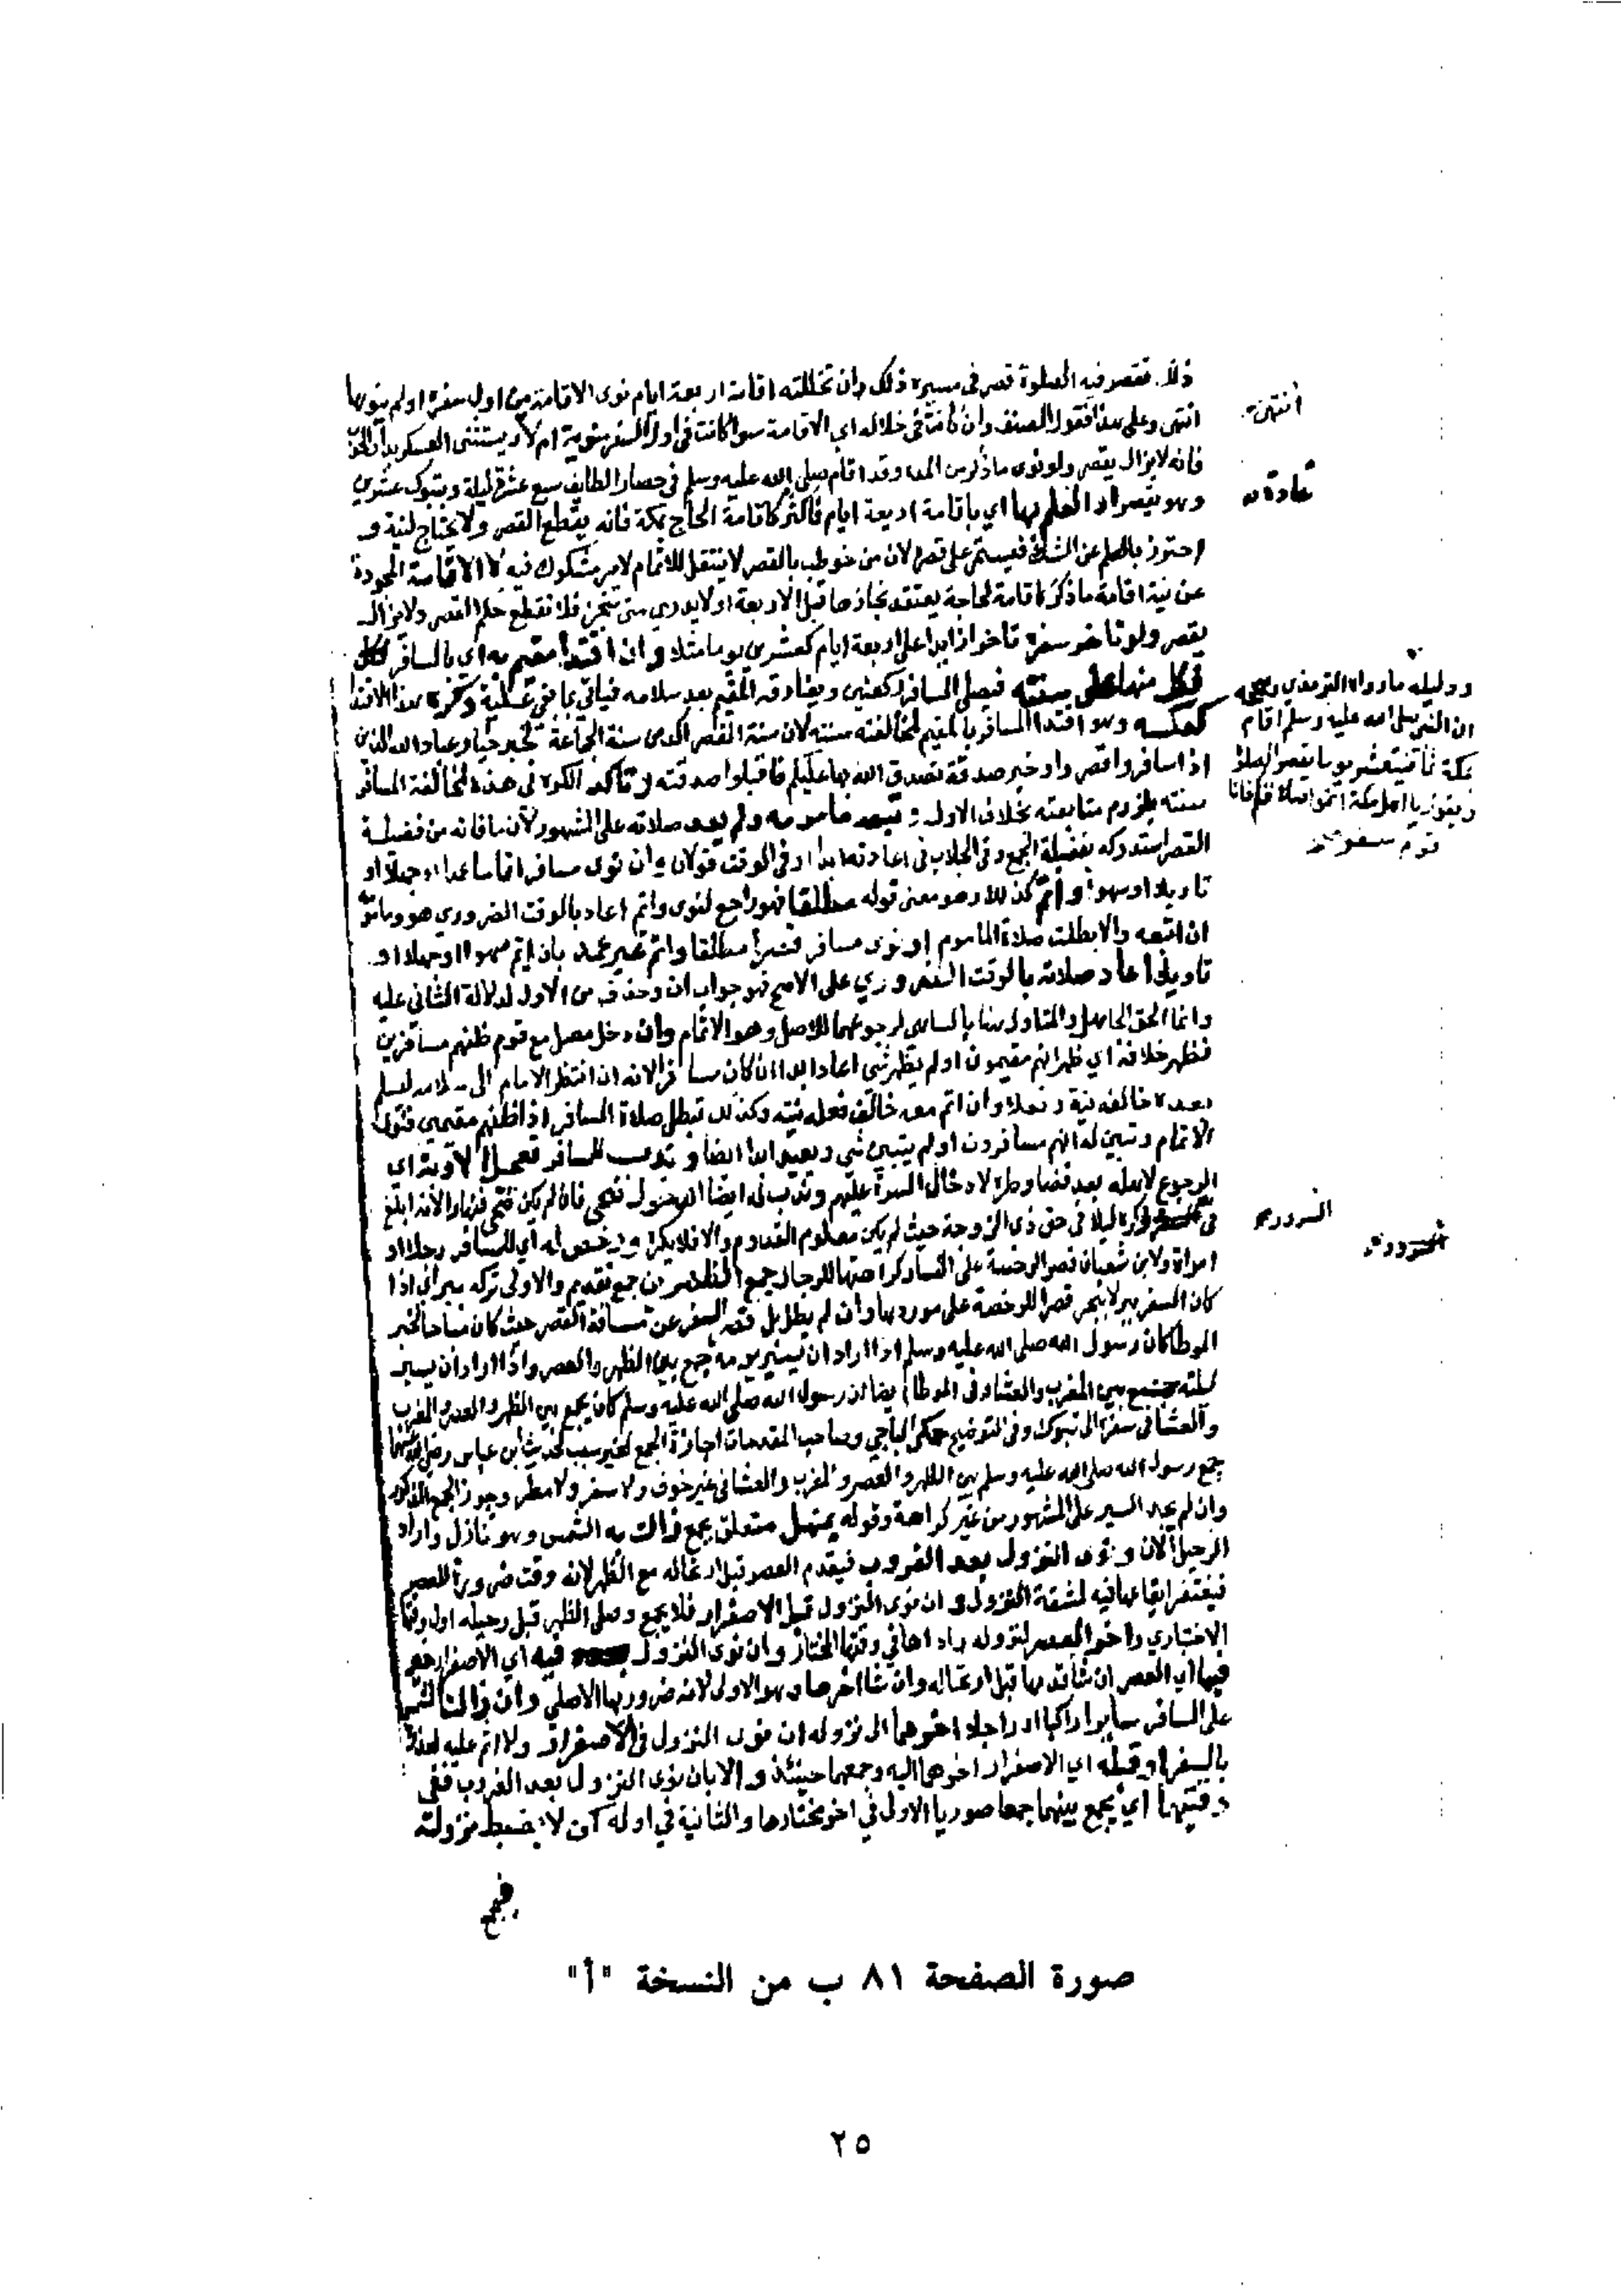 ذلك فقصر فيه الصلوة قصر في مسيره ذلك وان تخللته اقامة اربعة ايام نوى الاقامة من اول سفره او لم ينوها
انتهى وعلى هذا فقول المصنف وان كانت في خلاله اي الاقامة سوا كانت في اول السفر منوية ام لا ويستثنى العسكر بدار الحرب
فانه لا يزال يقصر ولو نوى ماذكر من المدة وقد اقام صلى الله عليه وسلم في حصار الطايف سبع عشرة ليلة وبتبوك عشرين
وهو يقصر او العلم بها اي باقامة اربعة ايام فاكثر كاقامة الحاج بمكة فانه يقطع القصر ولا يحتاج لنية و
احترز بالعلم عن الشك فيستمر على قصره لان من خوطب بالقصر لا ينتقل للاتمام لامر مشكوك فيه لا الاقامة المجردة
عن نية اقامة ماذكر كاقامة لحاجة يعتقد نجازها قبل الاربعة او لا يدري متى تنجز فلا تقطع حكم القصر ولا يزال
يقصر ولو تاخر سفره تاخرا زايدا على اربعة ايام كعشرين يوما مثلا وان اقتدا مقيم به اي بالمسافر
فكل منهما على سنته فيصلي المسافر ركعتين ويفارقه المقيم بعد سلامه فياتي بما بقي عليه وكره هذا الاقتدا
كعكسه وهو اقتدا المسافر بالمقيم لمخالفته سنته لان سنة القصر اكد من سنة الجماعة لخبر خيار عباد الله الذين
اذا سافروا قصروا وخبر صدقة تصدق الله بها عليكم فاقبلوا صدقته وتأكد الكره في هذه لمخالفة المسافر
سنته بلزوم متابعته بخلاف الاول وتبعه مأمومه ولم يعد صلاته على المشهور لان ما فاته من فضيلة
القصر استدركه بفضيلة الجمع وفي الجلاب في اعادته ابدا او في الوقت قولان وان نوى مسافر اتماما عمدا او جهلا او
تاويلا او سهوا واتم كذلك وهو معنى قوله مطلقا فهو راجع لنوى واتم اعاد بالوقت الضروري هو ومامومه
ان اتبعه والا بطلت صلاة الماموم او نوى مسافر قصرا مطلقا واتم غير عمد بان اتم سهوا او جهلا او
تاويلا اعاد صلاته بالوقت الضروري على الاصح فهو جواب ان وحذف من الاول لدلالة الثاني عليه
وانما الحق الجاهل والمتاول هنا بالساهي لرجوعهما للاصل وهو الاتمام وان دخل مصل مع قوم ظنهم مسافرين
فظهر خلافه اي ظهر انهم مقيمون او لم يظهر شي اعاد ابدا ان كان مسافرا لانه ان انتظر الامام الى سلامه ليسلم
بعده خالفه نية وفعلا وان اتم معه خالف فعله نيته وكذلك تبطل صلاة المسافر اذا ظنهم مقيمين فنوى
الاتمام وتبين له انهم مسافرون او لم يتبين شي ويعيد ابدا ايضا وندب للمسافر تعجيل الاوبة اي
الرجوع لاهله بعد قضا وطره لادخال السرة عليهم وندب له ايضا الدخول ضحى فان لم يكن ضحى فنهارا لانه ابلغ
في وكره ليلا في حق ذي الزوجة حيث لم يكن معلوم القدوم والا فلا يكره ورخص له اي للمسافر رجلا او
امراة ولابن شعبان قصر الرخصة على النساء وكراهتها للرجال جمع الظهرين جمع تقديم والاولى تركه ببر اي اذا
كان السفر ببر لا ببحر قصرا للرخصة على موردها وان لم يطل بل قصر السفر عن مسافة القصر حيث كان مباحا لخبر
الموطا كان رسول الله صلى الله عليه وسلم اذا اراد ان يسير يومه جمع بين الظهر والعصر واذا اراد ان يسير
ليلته جمع بين المغرب والعشا وفي الموطا ايضا ان رسول الله صلى الله عليه وسلم كان يجمع بين الظهر والعصر والمغرب
والعشا في سفره الى تبوك وفي التوضيح حكى الباجي وصاحب المقدمات اجازة الجمع لغير سبب لحديث ابن عباس رضي الله عنهما
جمع رسول الله صلى الله عليه وسلم بين الظهر والعصر والمغرب والعشا في غير خوف ولا سفر ولا مطر ويجوز الجمع المذكور
وان لم يجد السير على المشهور من غير كراهة وقوله بمنهل متعلق بجمع زالت به الشمس وهو نازل واراد
الرحيل الان ونوى النزول بعد الغروب فيقدم العصر قبل ارتحاله مع الظهر لانه وقت ضرورة للعصر
فيغتفر ايقاعها فيه لمشقة النزول وان نوى النزول قبل الاصفرار فلا يجمع وصلى الظهر قبل رحيله اول وقتها
الاختياري واخر العصر لنزوله واداها في وقتها المختار وان نوى النزول فيه اي الاصفرار خير
فيها اي العصر ان شا قدمها قبل ارتحاله وان شا اخرها وهو الاولى لانه ضروريها الاصلي وان زالت الشمس
على المسافر سايرا راكبا او راجلا اخرهما الى نزوله ان نوى النزول في الاصفرار ولا اثم عليه لعذره
بالسفر او قبله اي الاصفرار اخرهما اليه وجمعهما حينئذ والا بان نوى النزول بعد الغروب ففي
وقتيهما اي يجمع بينهما جمعا صوريا الاول في اخر مختارها والثانية في اوله كمن لا يضبط نزوله
فيجمع
انتهى
عادة
ودليله ما رواه الترمذي وصححه
ان النبي صلى الله عليه وسلم اقام
بمكة ثمانية عشر يوما يقصر الصلاة
ويقول يا اهل مكة اتموا صلاتكم فانا
قوم سفر
السرور
صورة الصفحة ٨١ ب من النسخة "أ"
٢٥